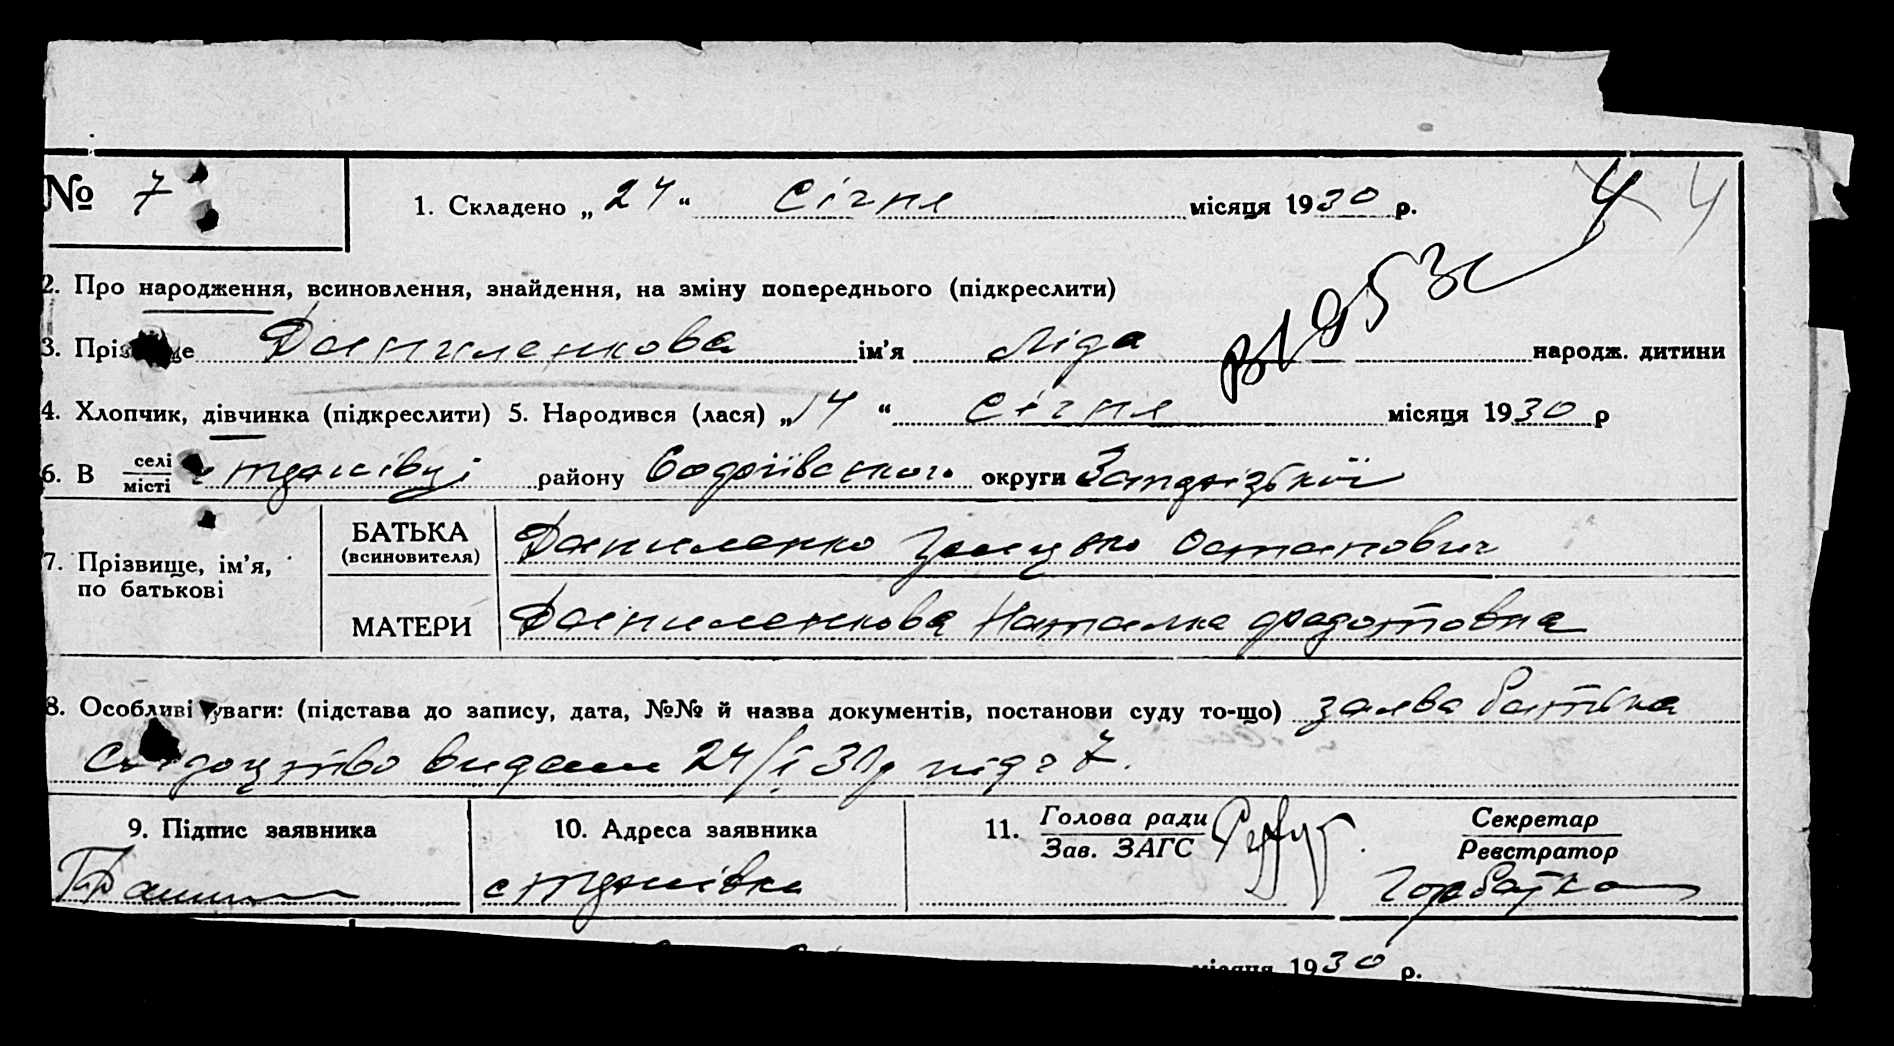 № 7 1. Складено „ 24 “ Січня місяця 1930 р. 4 4
2. Про народження, всиновлення, знайдення, на зміну попереднього (підкреслити)
3. Прізвище Даниленкова ім’я Ліда народж. дитини
4. Хлопчик, дівчинка (підкреслити) 5. Народився (лася) „ 14 “ Січня місяця 1930 р
6. В селі місті району округи
7. Прізвище, ім’я, по батькові
БАТЬКА (всиновителя) Даниленко Остапович
МАТЕРИ Даниленкова Наталка Федотовна
8. Особливі уваги: (підстава до запису, дата, №№ й назва документів, постанови суду то-що) заява батька
Свідоцтво видали 24/I 30р під ч 7.
9. Підпис заявника 10. Адреса заявника 11. Голова ради Зав. ЗАГС Секретар Реєстратор
місяця 1930 р.